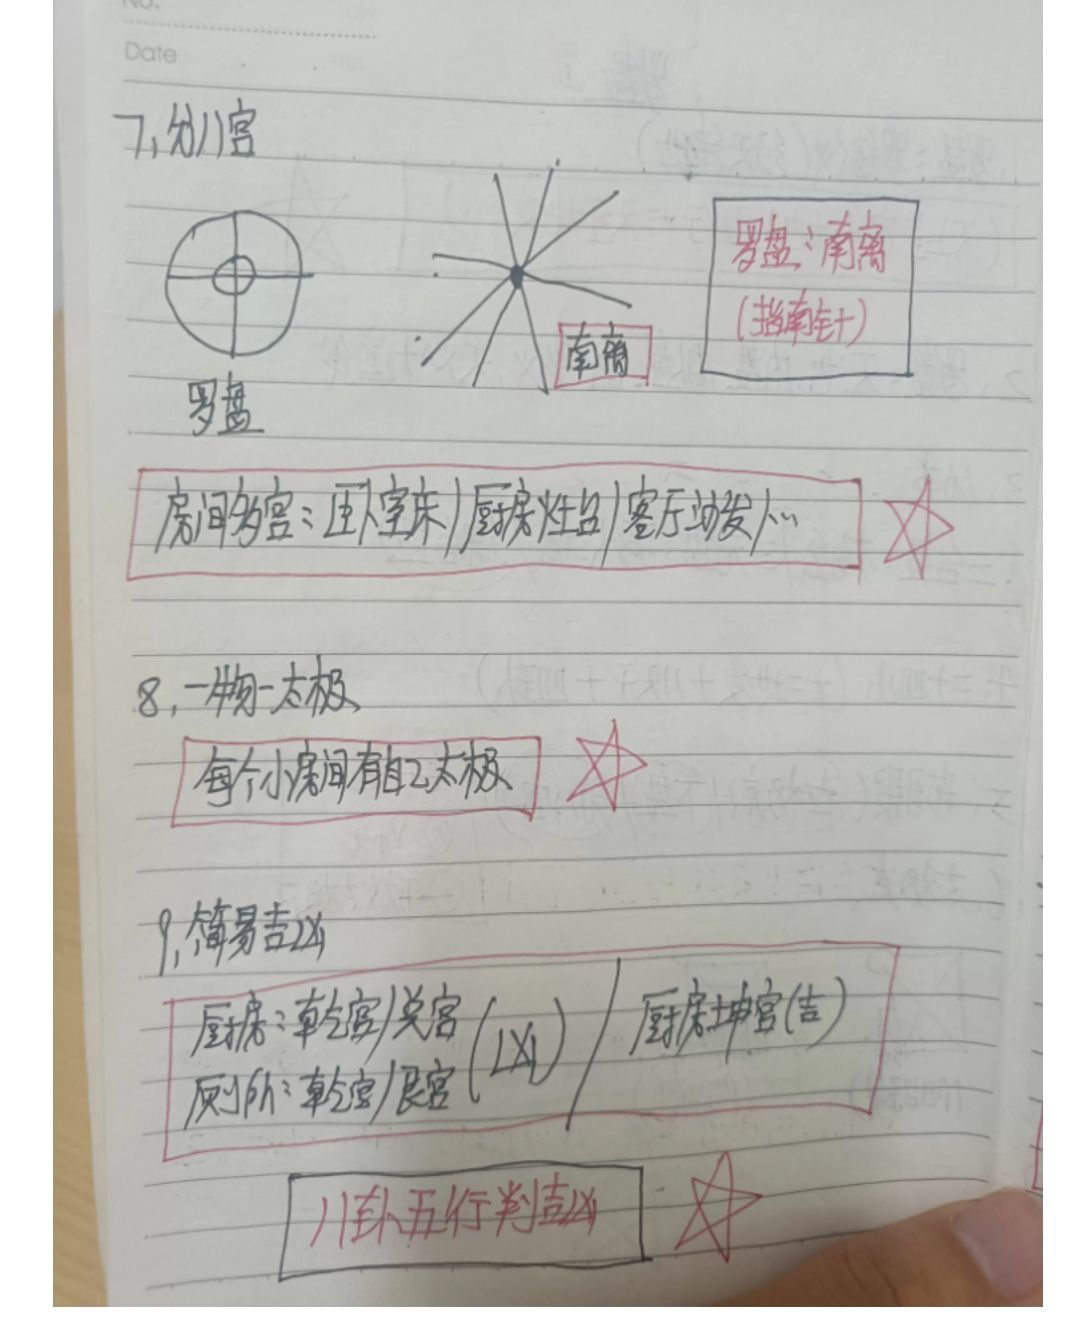 No.
Date
7,分八宫
罗盘:南离
(指南针)
南离
罗盘
房间多宫:卧室床/厨房灶台/客厅沙发/…
8,一物一太极
每个小房间有自己太极
9,简易吉凶
厨房:乾宫/兑宫
(凶)
厨房坤宫(吉)
厕所:乾宫/艮宫
八卦五行判吉凶